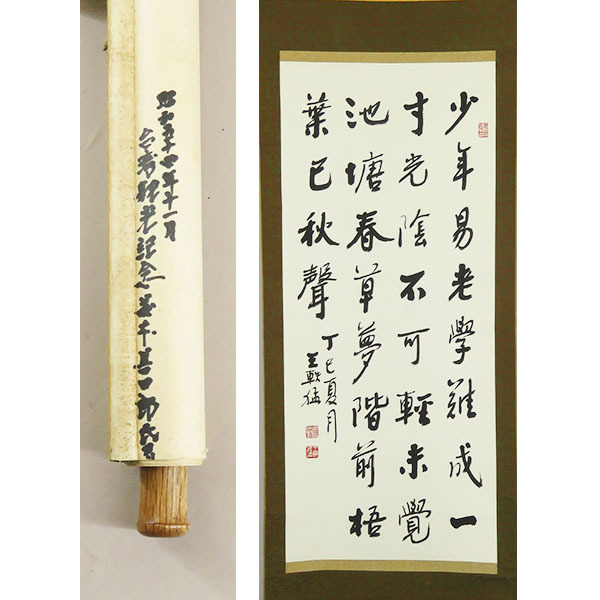 昭和五十四年十一月
台湾観光記念
少年易老學難成一
寸光陰不可輕未覺
池塘春草夢階前梧
葉已秋聲
丁巳夏月
王軼猛